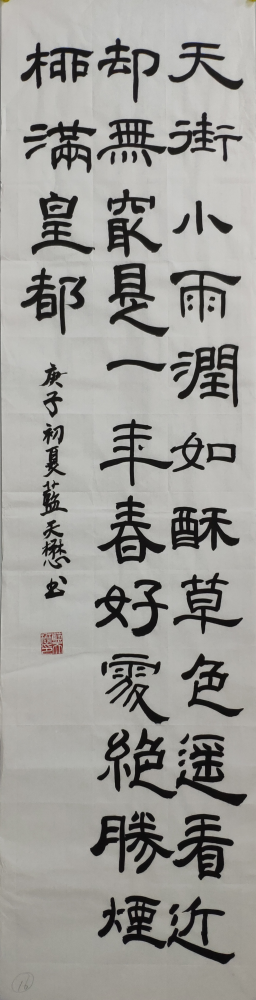 天街小雨潤如酥草色遥看近
却無最是一年春好處絕勝煙
柳滿皇都
庚子初夏藍天懋书